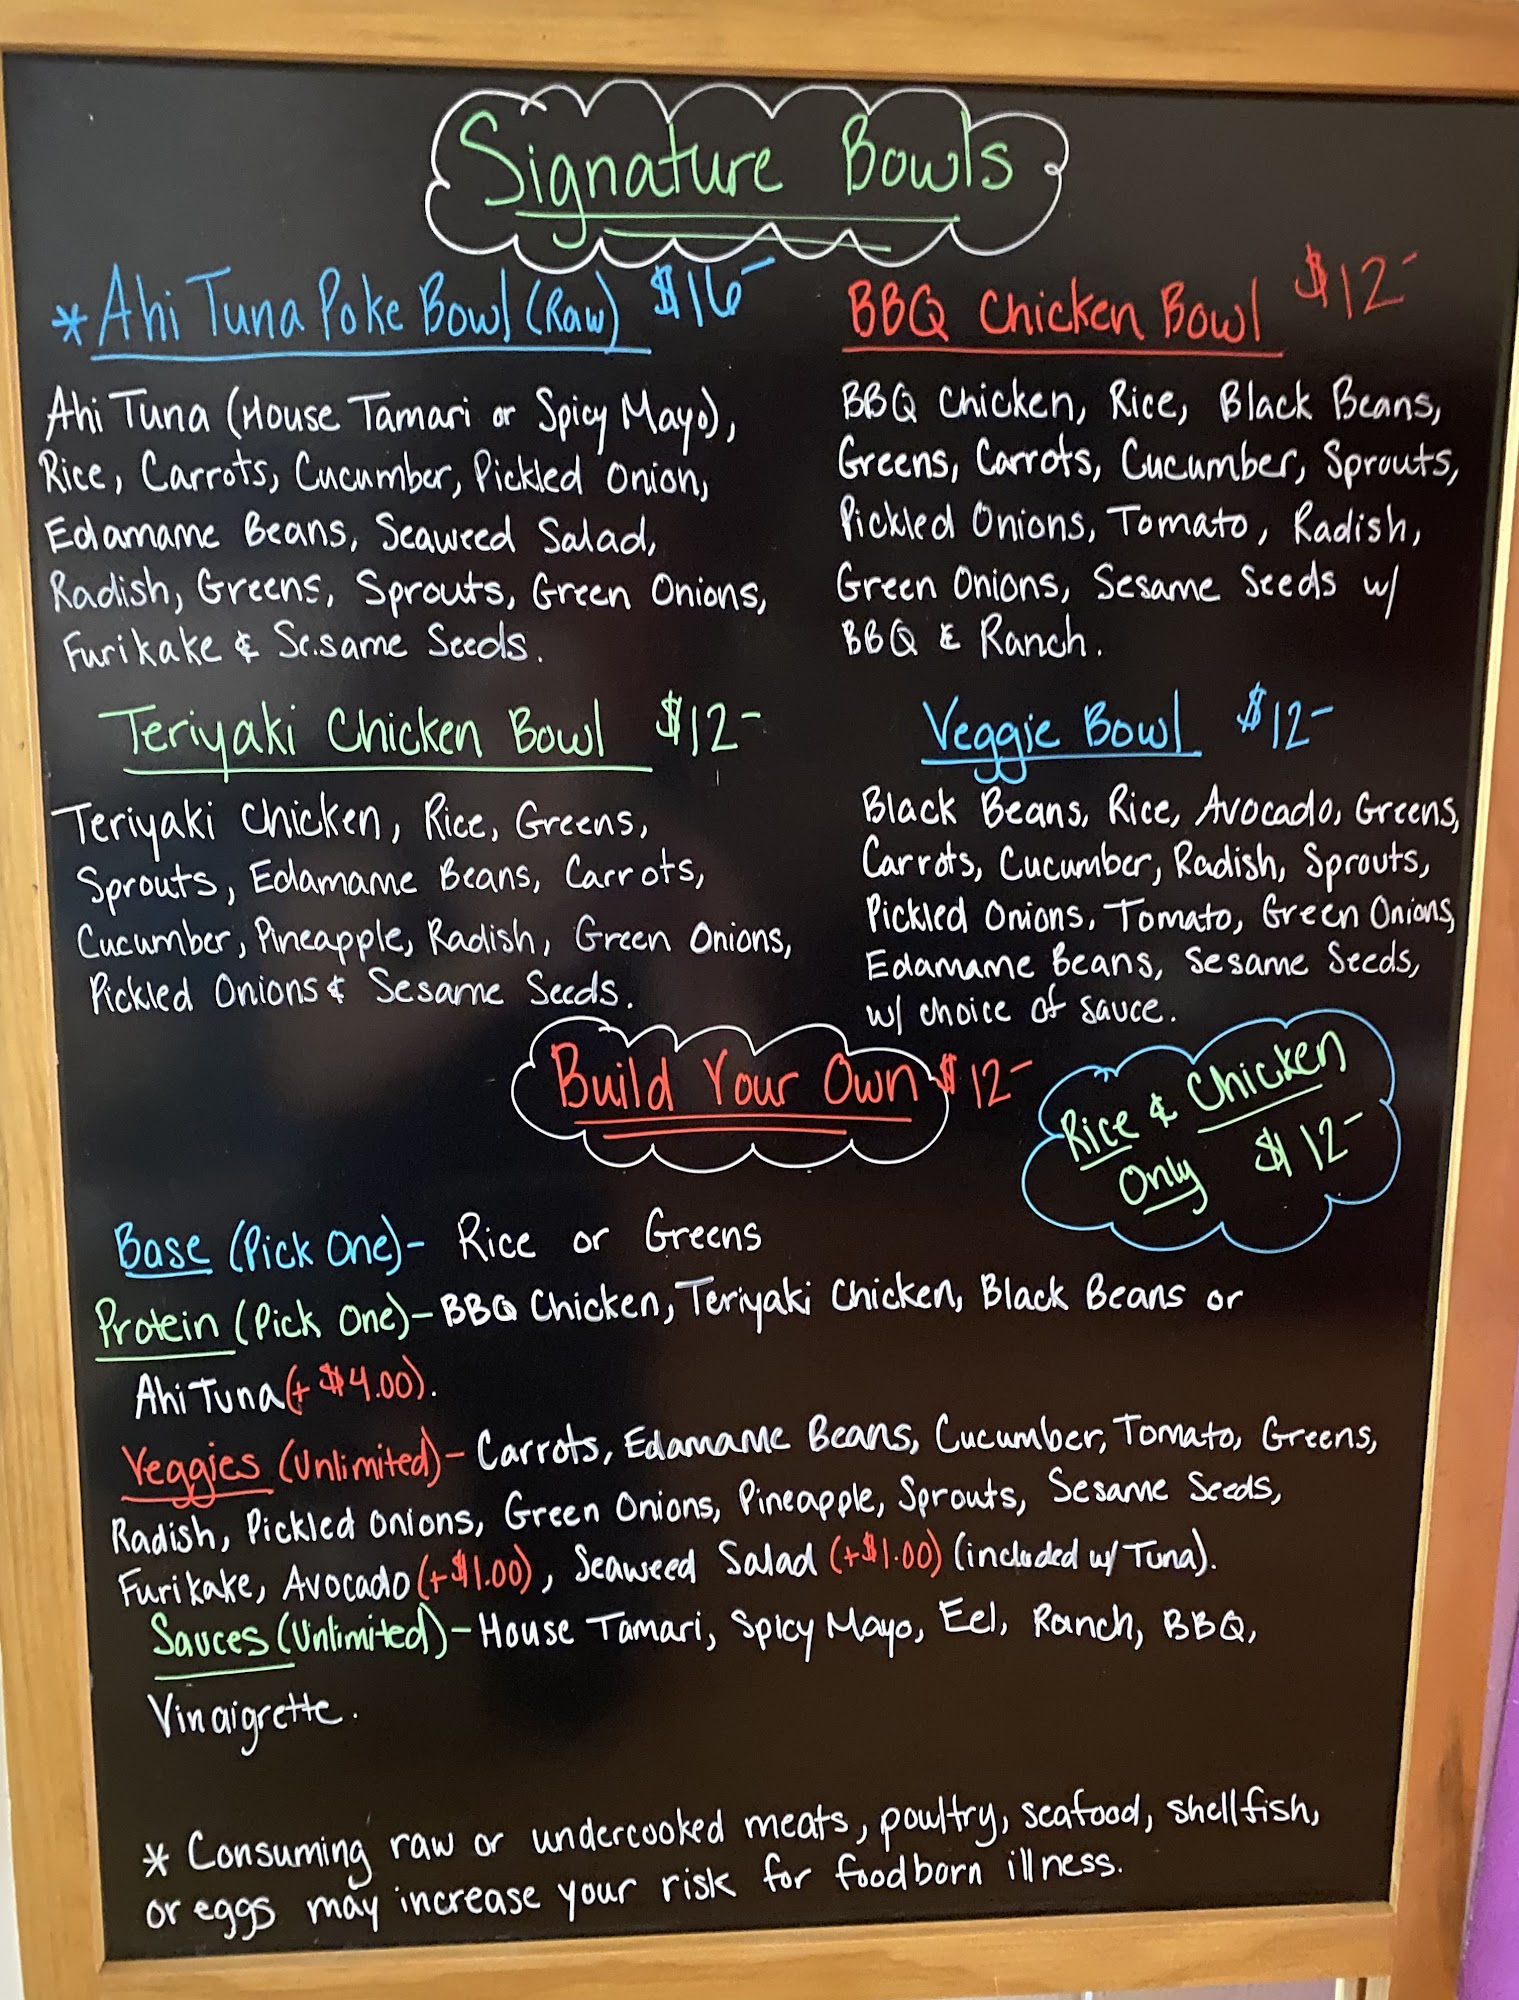 Signature Bowls
*Ahi Tuna Poke Bowl (Raw) $16-
Ahi Tuna (House Tamari or Spicy Mayo),
Rice, Carrots, Cucumber, Pickled Onion,
Edamame Beans, Seaweed Salad,
Radish, Greens, Sprouts, Green Onions,
Furikake & Sesame Seeds.
BBQ Chicken Bowl $12-
BBQ Chicken, Rice, Black Beans,
Greens, Carrots, Cucumber, Sprouts,
Pickled Onions, Tomato, Radish,
Green Onions, Sesame Seeds w/
BBQ & Ranch.
Teriyaki Chicken Bowl $12-
Teriyaki Chicken, Rice, Greens,
Sprouts, Edamame Beans, Carrots,
Cucumber, Pineapple, Radish, Green Onions,
Pickled Onions & Sesame Seeds.
Veggie Bowl $12-
Black Beans, Rice, Avocado, Greens,
Carrots, Cucumber, Radish, Sprouts,
Pickled Onions, Tomato, Green Onions,
Edamame Beans, Sesame Seeds,
w/ choice of sauce.
Build Your Own $12-
Rice & Chicken
Only $12-
Base (Pick One)- Rice or Greens
Protein (Pick One)- BBQ Chicken, Teriyaki Chicken, Black Beans or
Ahi Tuna (+ $4.00).
Veggies (Unlimited)- Carrots, Edamame Beans, Cucumber, Tomato, Greens,
Radish, Pickled Onions, Green Onions, Pineapple, Sprouts, Sesame Seeds,
Furikake, Avocado (+$1.00), Seaweed Salad (+$1.00) (included w/ Tuna).
Sauces (Unlimited)- House Tamari, Spicy Mayo, Eel, Ranch, BBQ,
Vinaigrette.
* Consuming raw or undercooked meats, poultry, seafood, shellfish,
or eggs may increase your risk for foodborn illness.